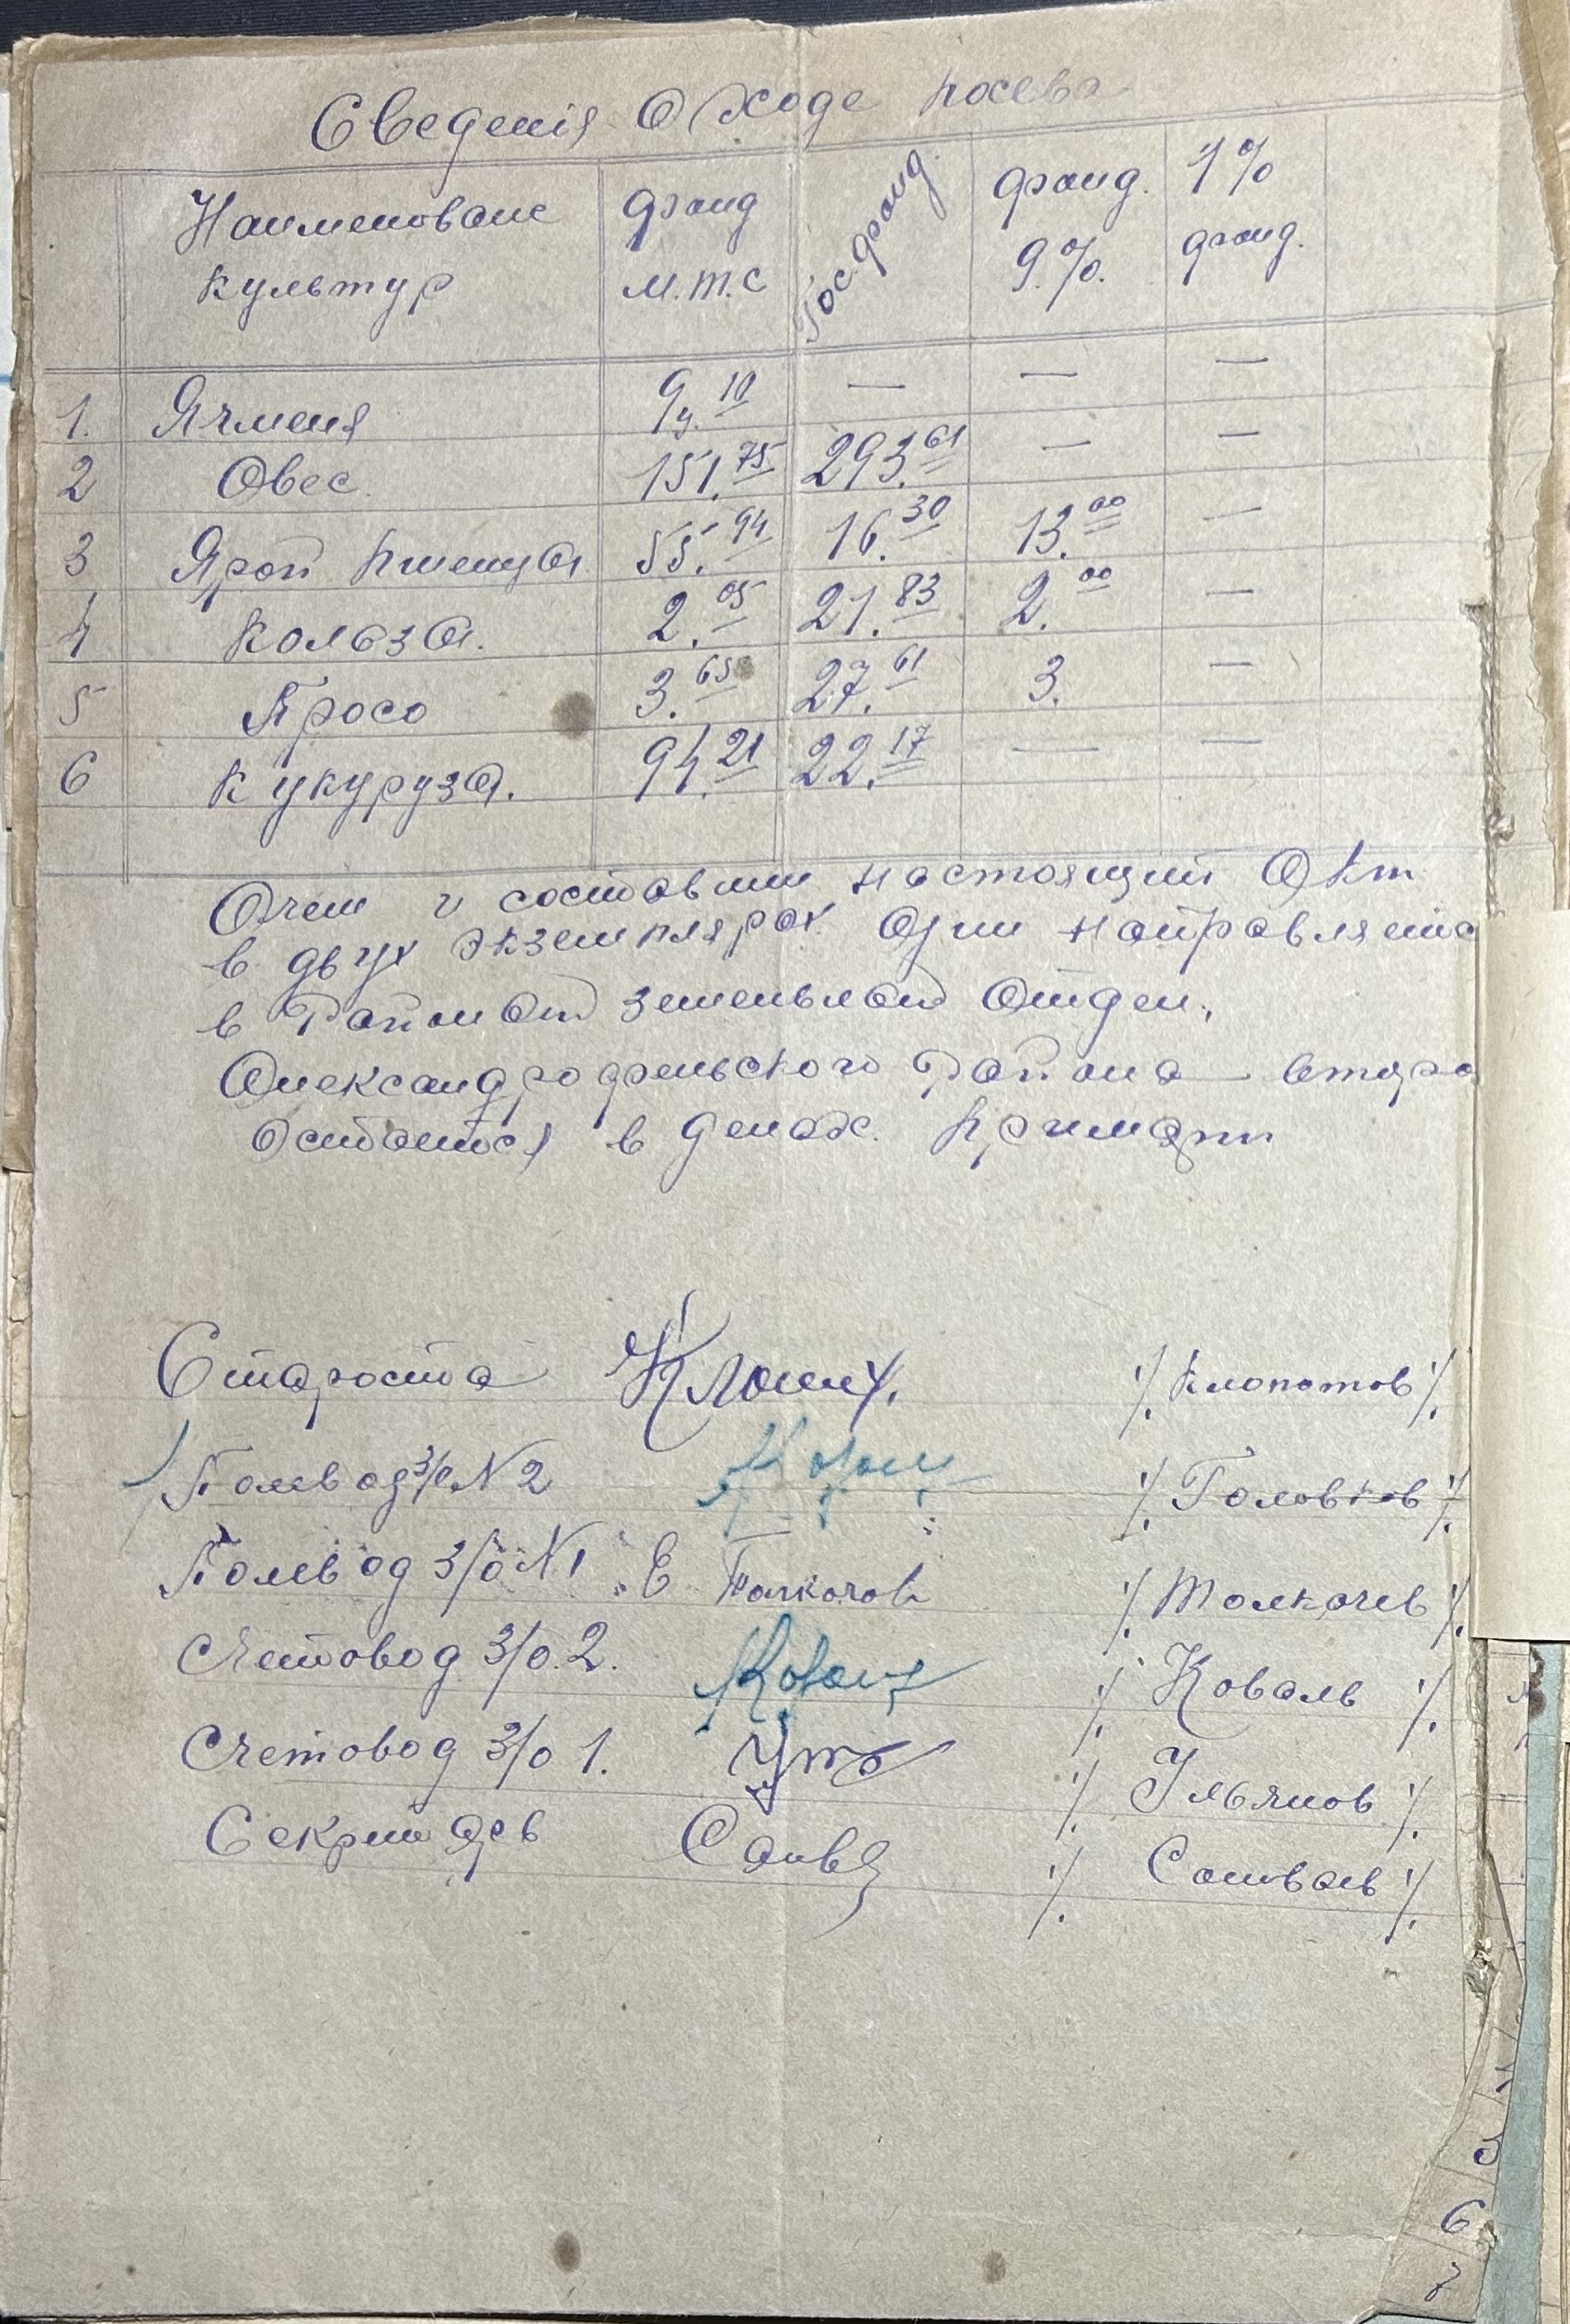 Сведенiя о ходе посева
Наименование культур фонд м.т.с Госфонд фонд. 9.%. 1% фонд.
1. Ячменя 9ц.10 — — —
2 Овес 151.75 293.61 — —
3 Ярой пшеница 55.94 16.30 13.00 —
4 Кольза. 2.05 21.83 2.00 —
5 Просо 3.65 27.61 3. —
6 Кукуруза. 94.21 22.17 — —
О чем и составлин настоящий Окт
в двух экземплярах один нопровляетс
в Районой земельной Отдел.
Олександрофельского Района втора
остоется в делах. Примари
Староста ./. Клопотов ./.
Полевод з/о N 2 ./. Головков ./.
Полевод з/о N 1 Е Толкочов ./. Толкачев ./.
Счетовод з/о.2. ./. Коваль ./.
Счетовод з/о 1. ./. Ульянов ./.
Секретарь ./.
6
7